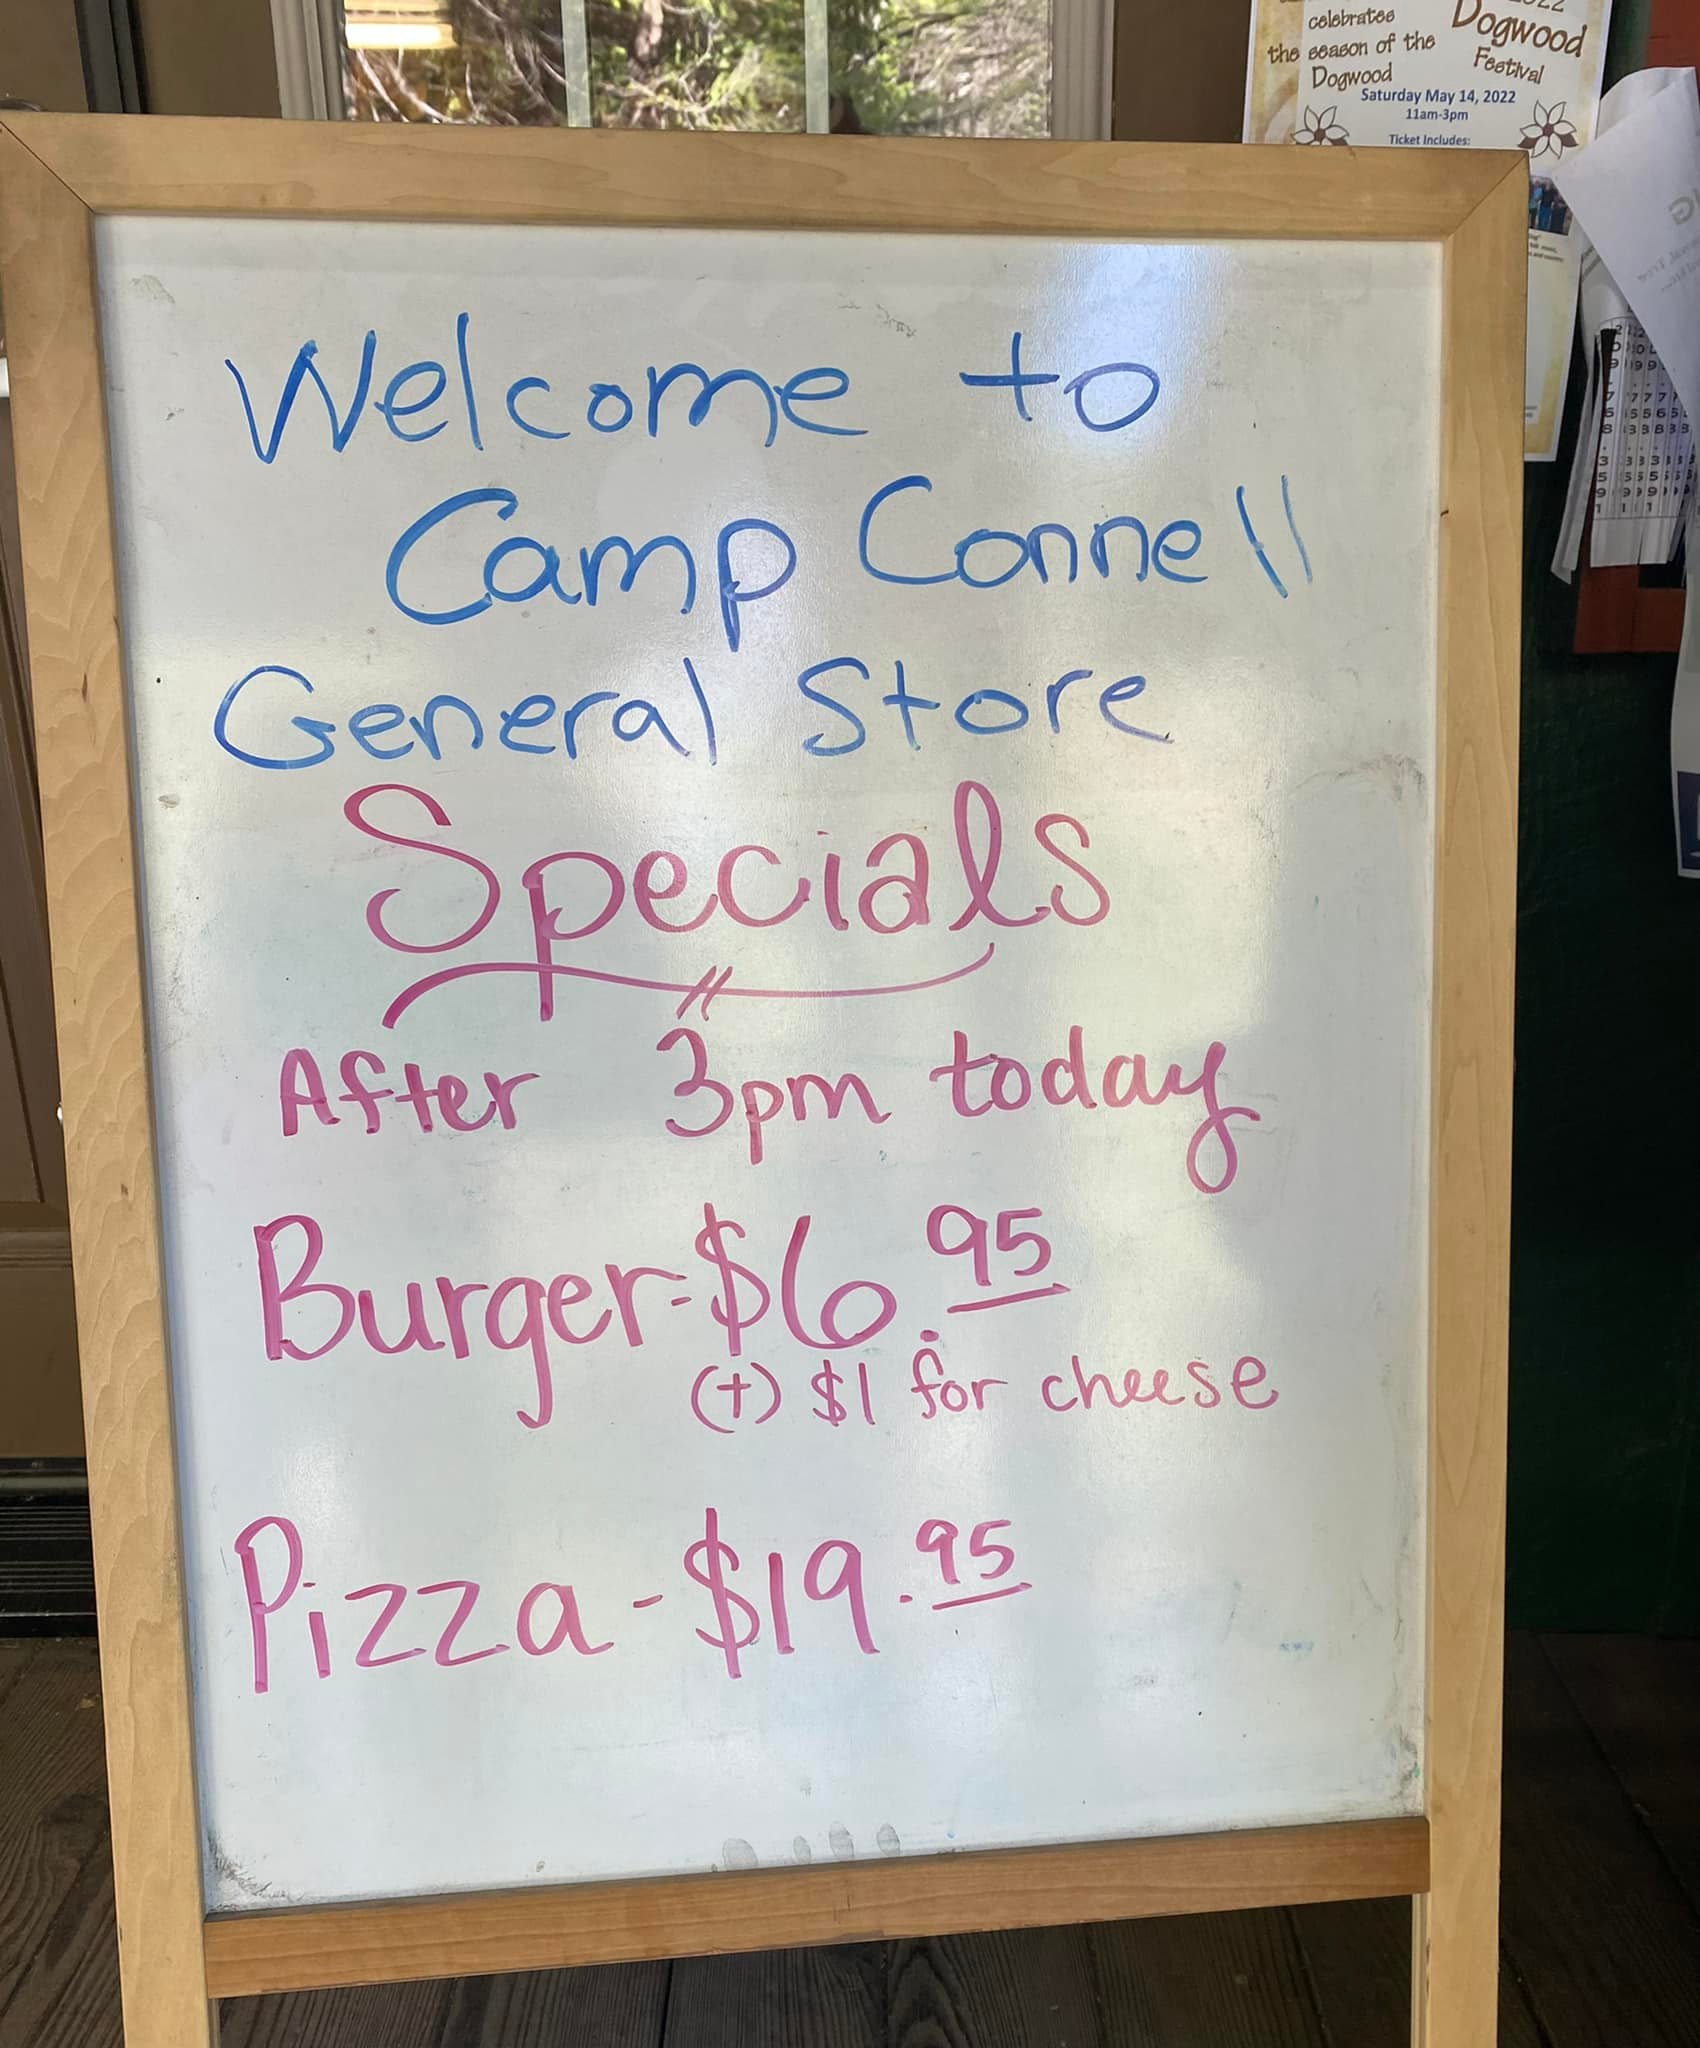 2022
celebrates
the season of the
Dogwood
Dogwood
Festival
Saturday May 14, 2022
11am-3pm
Ticket Includes:
Welcome to
Camp Connell
General Store
Specials
After 3pm today
Burger-$6.95
(+) $1 for cheese
Pizza-$19.95